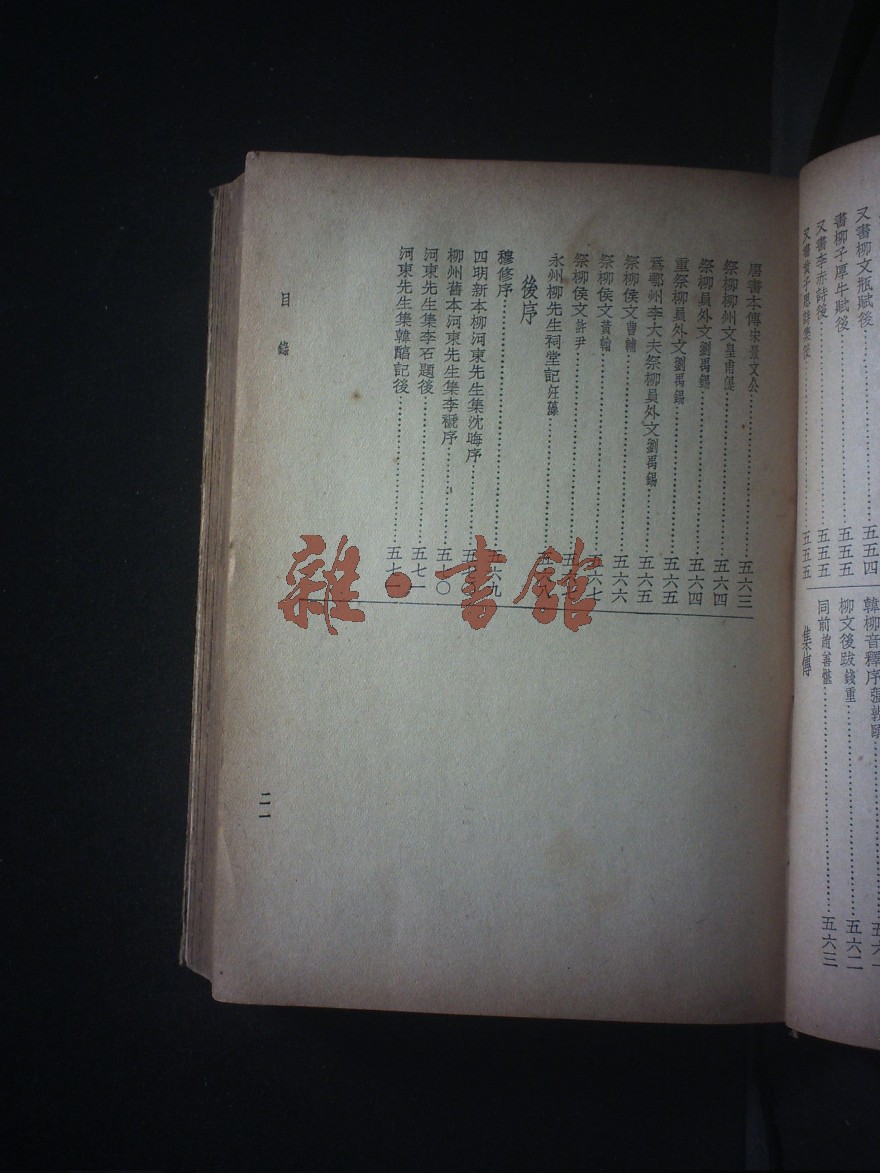 又書柳文瓶賦後……五五四
書柳子厚牛賦後……五五五
又書李赤詩後……五五五
又書黃子思詩集後……五五五
韓柳音釋序張敦頤……五六一
柳文後跋錢重……五六二
同前趙善愖……五六三
集傳
唐書本傳宋景文公……五六三
祭柳柳州文皇甫湜……五六四
祭柳員外文劉禹錫……五六四
重祭柳員外文劉禹錫……五六五
爲鄂州李大夫祭柳員外文劉禹錫……五六五
祭柳侯文曹輔……五六六
祭柳侯文黃翰……五六七
祭柳侯文許尹……五
永州柳先生祠堂記汪藻……五
後序
穆修序……五六九
四明新本柳河東先生集沈晦序……五
柳州舊本河東先生集李褫序……五七〇
河東先生集李石題後……五七一
河東先生集韓醕記後……五七一
目錄
二一
雜·書館